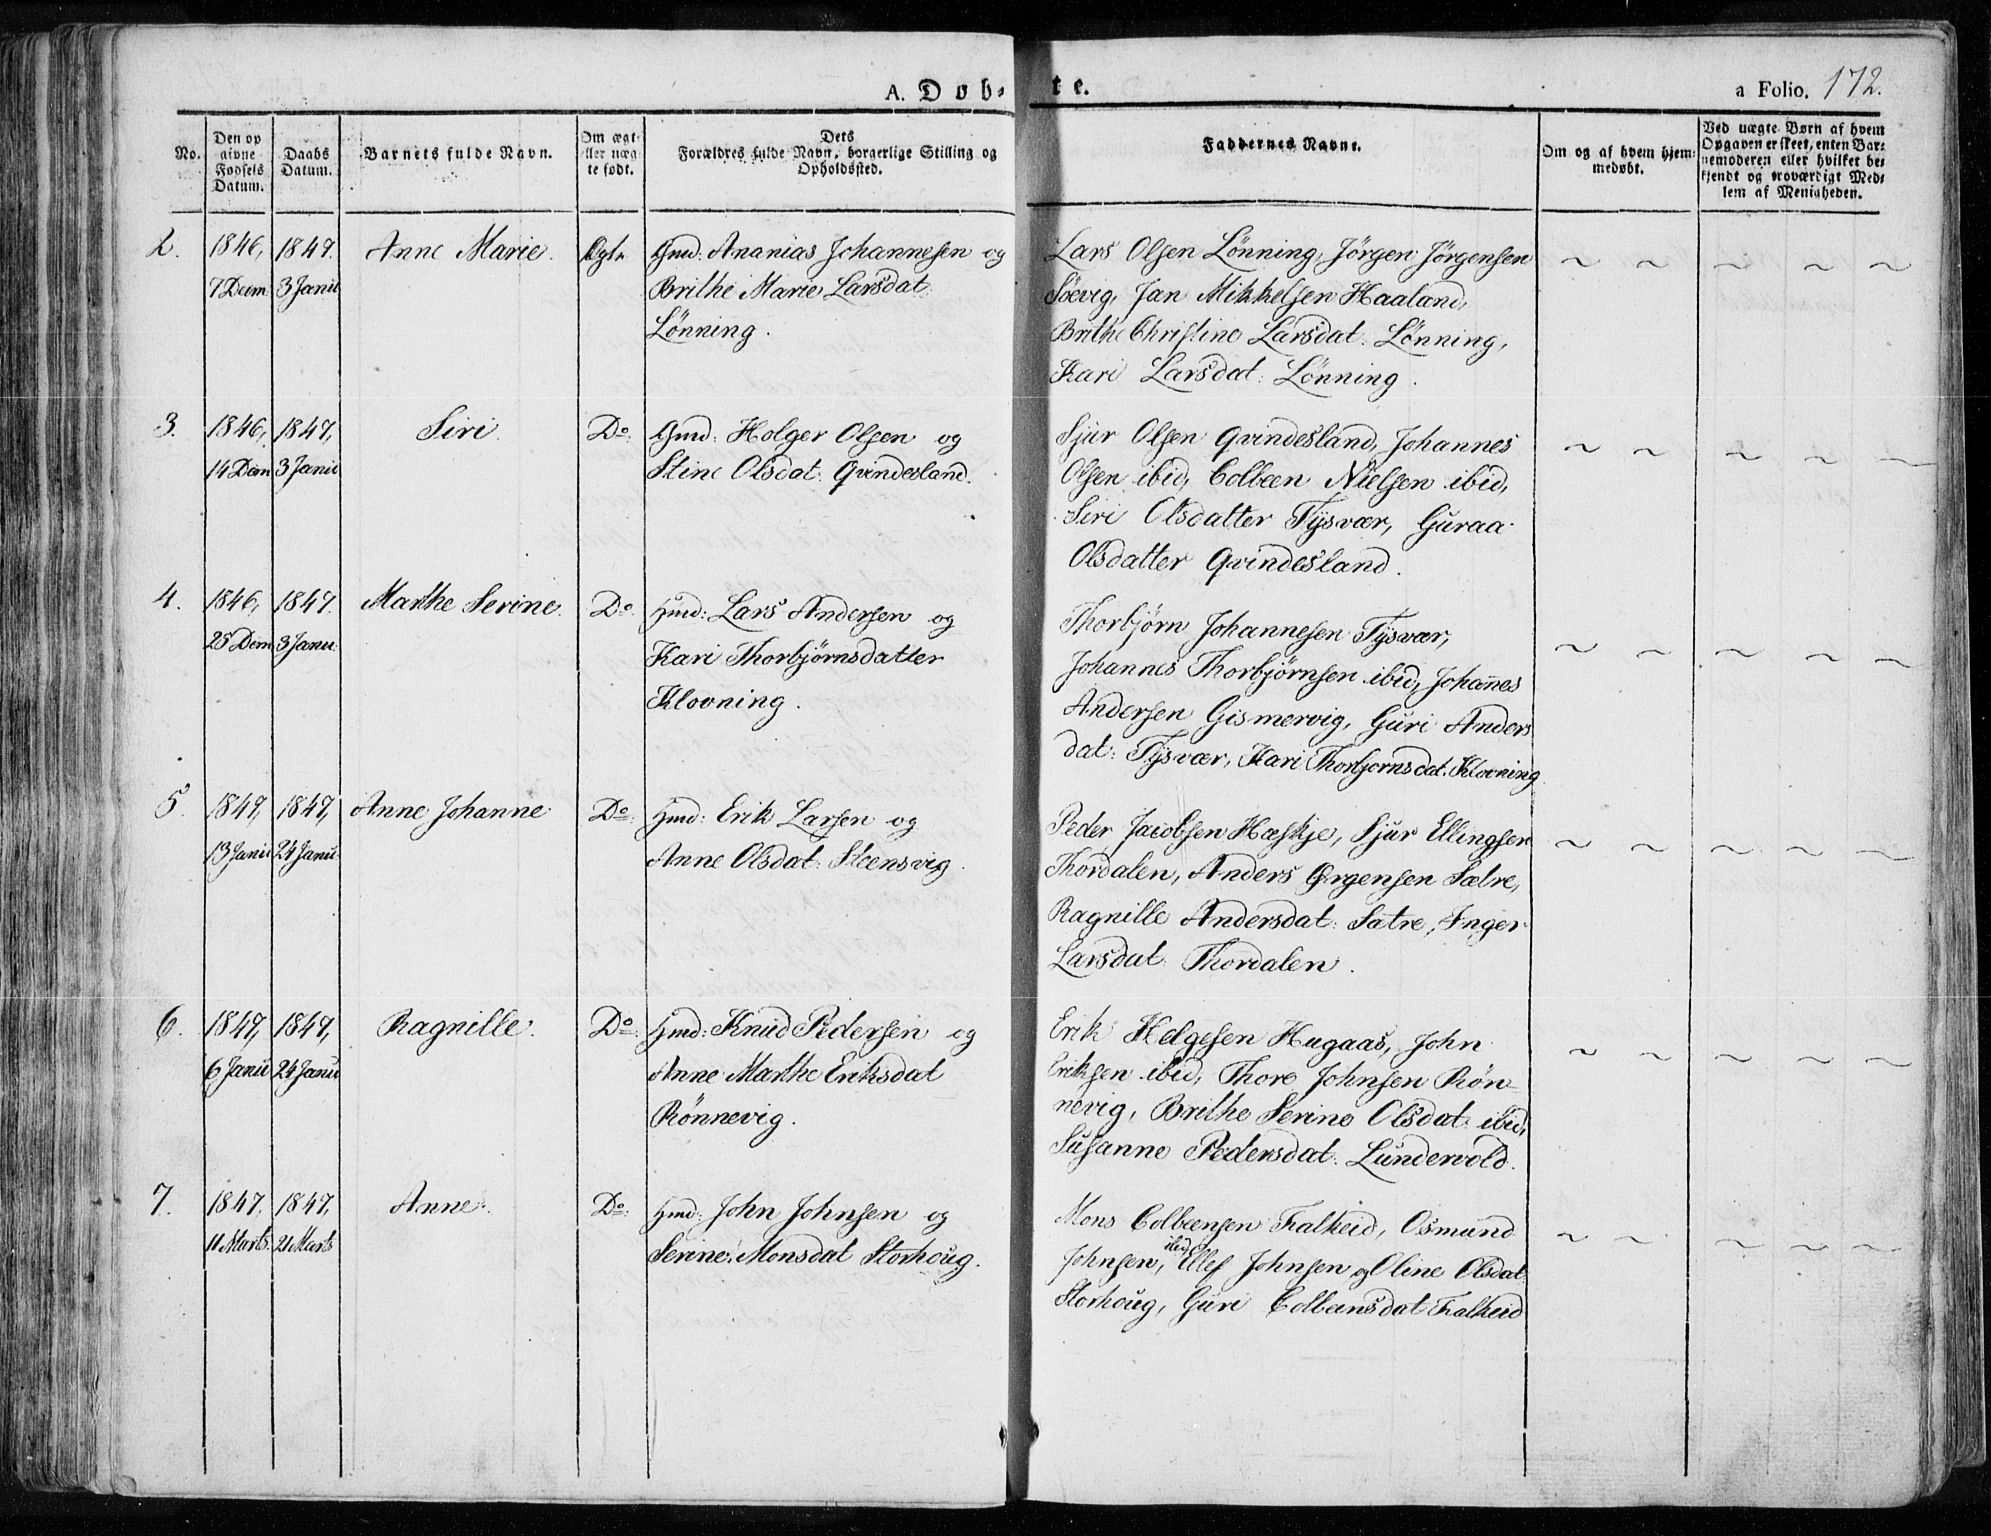 A. Døb-
te.
a Folio. 172.
No.
Den op
givne
Fødsels
Datum.
Daabs
Datum.
Barnets fulde Navn.
Om ægt-
eller uæg-
te født.
Dets
Forældres fulde Navn, borgerlige Stilling og
Opholdssted.
Faddernes Navne.
Om og af hvem hjem-
medøbt.
Ved uægte Børn af hvem
Opgaven er skeet, enten Bar-
nemoderen eller hvilket be-
kjendt og troværdigt Med-
lem af Menigheden.
2. 1846, 1847. Anne Marie. Ægte. Gmd: Ananias Johannesen og
7 Decm 3 Janu Brithe Marie Larsdat:
Lönning.
Lars Olsen Lönning, Jörgen Jörgensen
Söevig, Jan Mikkelsen Haaland,
Brithe Christine Larsdat: Lönning,
Kari Larsdat: Lönning.
3. 1846, 1847, Siri. Do. Gmd: Holger Olsen og
14 Decm 3 Janu Stine Olsdat: Qvindesland.
Sjur Olsen Qvindesland, Johannes
Olsen ibid, Colbæn Nielsen ibid,
Siri Olsdatter Tysvær, Guraa
Olsdatter Qvindesland.
4. 1846, 1847. Marthe Serine. Do. Hmd: Lars Andersen og
25 Decm 3 Janu: Kari Thorbjörnsdatter
Klovning.
Thorbjörn Johannesen Tysvær,
Johannes Thorbjörnsen ibid, Johan̄es
Andersen Gismervig, Guri Anders
dat: Tysvær, Kari Thorbjornsdat. Klovning
5. 1847, 1847, Anne Johanne Do. Hmd: Erik Larsen og
13 Janu 24 Janu. Anne Olsdat: Steensvig.
Peder Jacobsen Hæskje, Sjur Ellingsen
Thordalen, Anders Örgensen Sætre,
Ragnille Andersdat: Sætre, Inger
Larsdat: Thordalen.
6. 1847, 1847, Ragnille. Do. Hmd: Knud Pedersen og
6 Janu 24 Janu Anne Marthe Eriksdat
Rönnevig.
Erik Helgesen Hugaas, John
Eriksen ibid, Thore Johnsen Rön-
nevig, Brithe Serine Olsdat: ibid,
Susanne Pedersdat: Lundervold.
7. 1847. 1847, Anne. Do. Hmd: John Johnsen og
11 Marts. 21 Marts Serine Monsdat Storhoug.
Mons Colbænsen Falkeid, Osmund
Johnsen, ibid, Ellef Johnsen og Oline Olsdat:
Storhoug, Guri Colbænsdat Falkeid